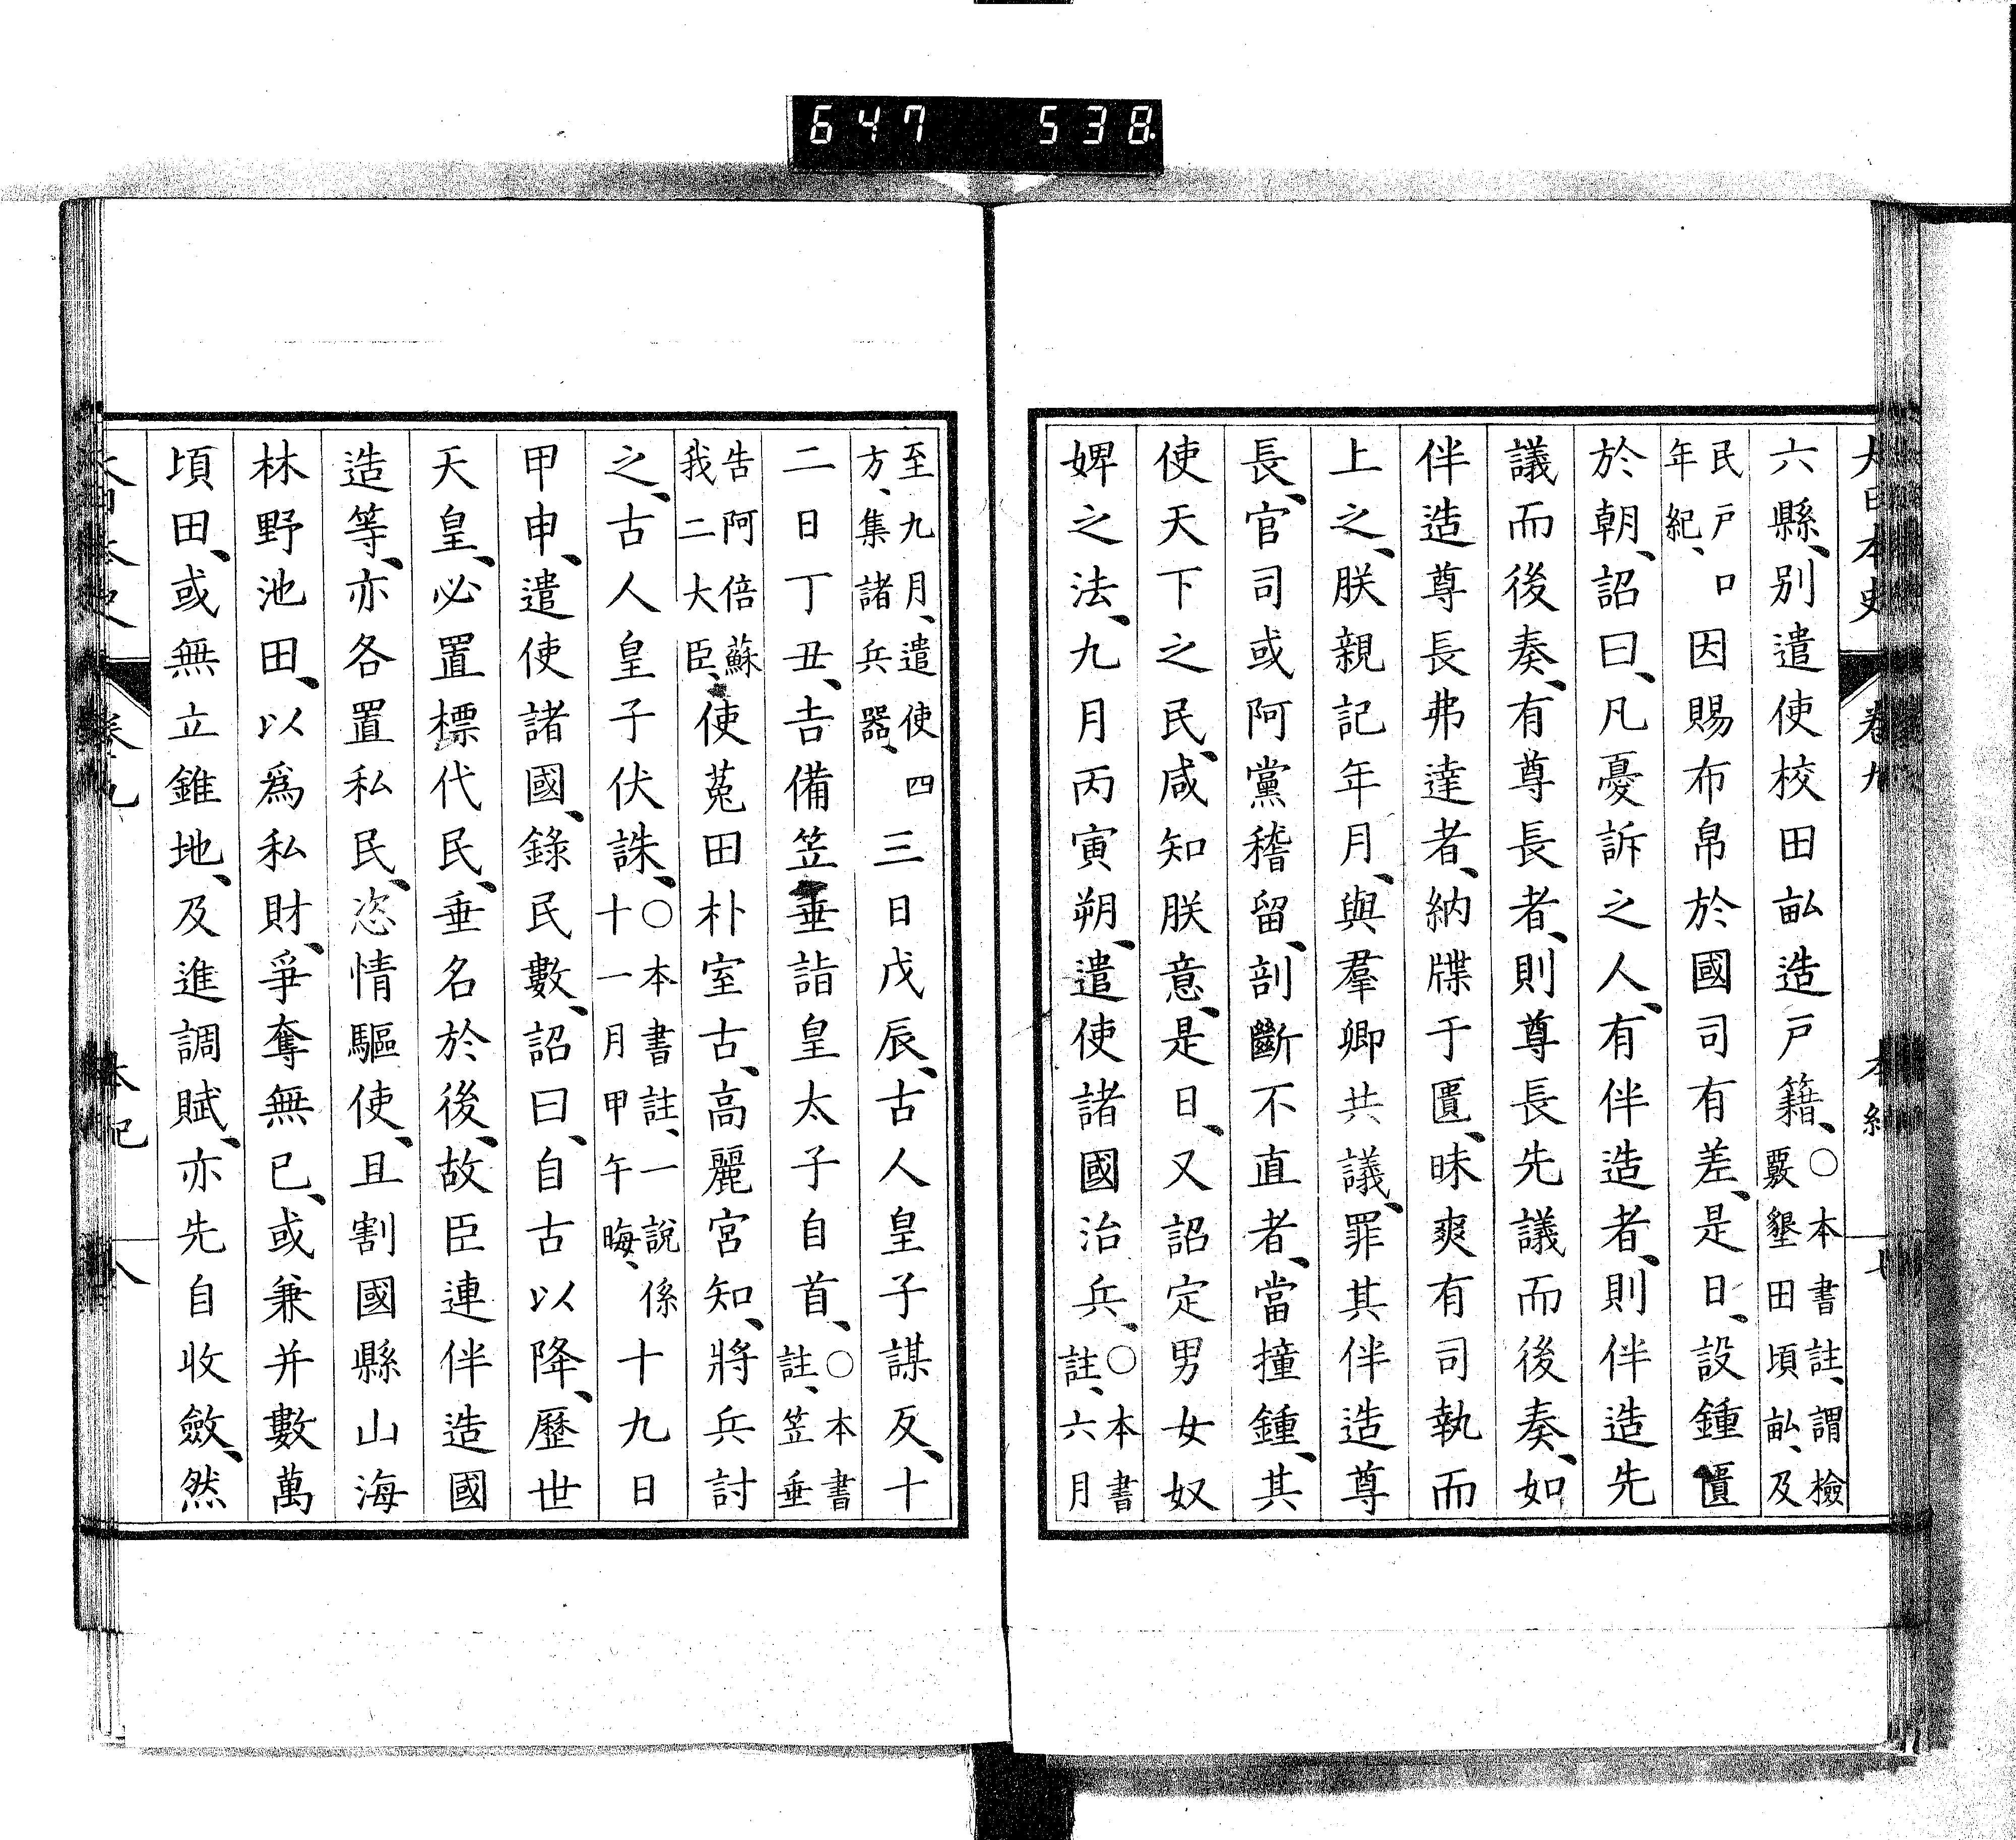 647 538
大日本史 卷九 本紀 七
六縣、別遣使校田畝造戸籍、○本書註、謂檢覈墾田頃畝、及
民戸口年紀、因賜布帛於國司有差、是日、設鍾匱
於朝、詔曰、凡憂訴之人、有伴造者、則伴造先
議而後奏、有尊長者、則尊長先議而後奏、如
伴造尊長弗達者、納牒于匱、昧爽有司執而
上之、朕親記年月、與羣卿共議、罪其伴造尊
長、官司或阿黨稽留、剖斷不直者、當撞鍾、其
使天下之民、咸知朕意、是日、又詔定男女奴
婢之法、九月丙寅朔、遣使諸國治兵、○本書註、六月
至九月、遣使四方、集諸兵器、三日戊辰、古人皇子謀反、十
二日丁丑、吉備笠垂詣皇太子自首、○本書註、笠垂
告阿倍蘇我二大臣、使菟田朴室古、高麗宮知、將兵討
之、古人皇子伏誅、○本書註、一說係十一月甲午晦、十九日
甲申、遣使諸國、錄民數、詔曰、自古以降、歷世
天皇、必置標代民、垂名於後、故臣連伴造國
造等、亦各置私民、恣情驅使、且割國縣山海
林野池田、以爲私財、爭奪無已、或兼并數萬
頃田、或無立錐地、及進調賦、亦先自收斂、然
大日本史 卷九 本紀 八